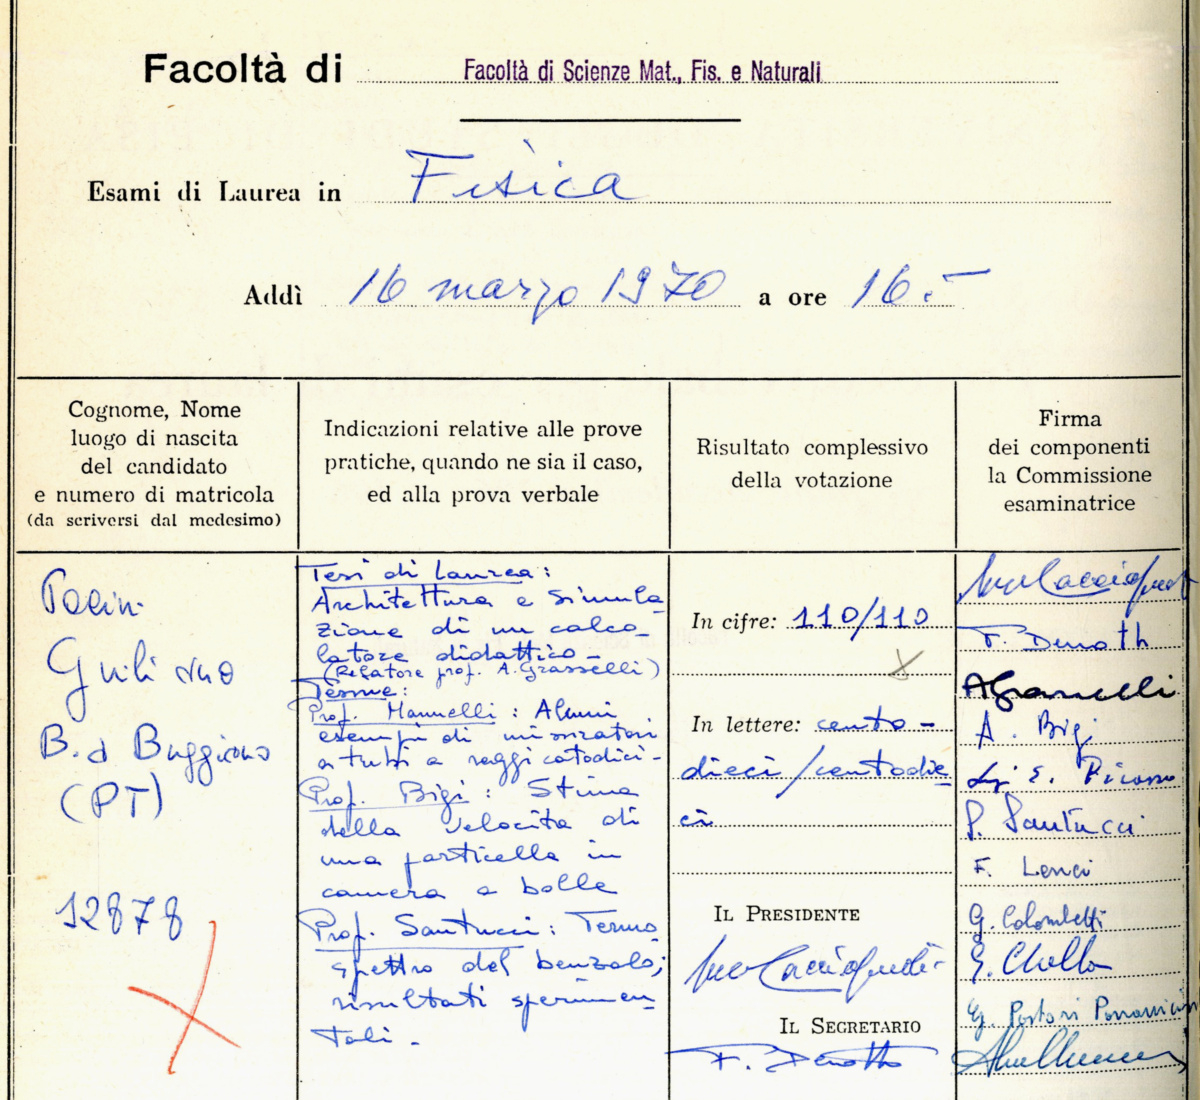 Facoltà di Facoltà di Scienze Mat., Fis. e Naturali
Esami di Laurea in Fisica
Addì 16 marzo 1970 a ore 16.-
Cognome, Nome
luogo di nascita
del candidato
e numero di matricola
(da scriversi dal medesimo)
Giuliano
B. a Buggiano
(PT)
12878
Indicazioni relative alle prove
pratiche, quando ne sia il caso,
ed alla prova verbale
Tesi di Laurea:
Architettura e simula-
zione di un calco-
latore didattico -
(Relatore prof. A. Grasselli)
Tesine:
Prof. Mannelli: Alcuni
esempi di misuratori
a tubi a raggi catodici -
Prof. Bigi: Stima
della velocità di
una particella in
camera a bolle
Prof. Santucci: Termo
spettro del benzolo;
risultati sperimen-
tali -
Risultato complessivo
della votazione
In cifre: 110/110
In lettere: cento-
dieci/centodie-
ci
IL PRESIDENTE
IL SEGRETARIO
F. Denoth
Firma
dei componenti
la Commissione
esaminatrice
F. Denoth
AGrasselli
A. Bigi
E. Picasso
S. Santucci
F. Lenci
G. Colombetti